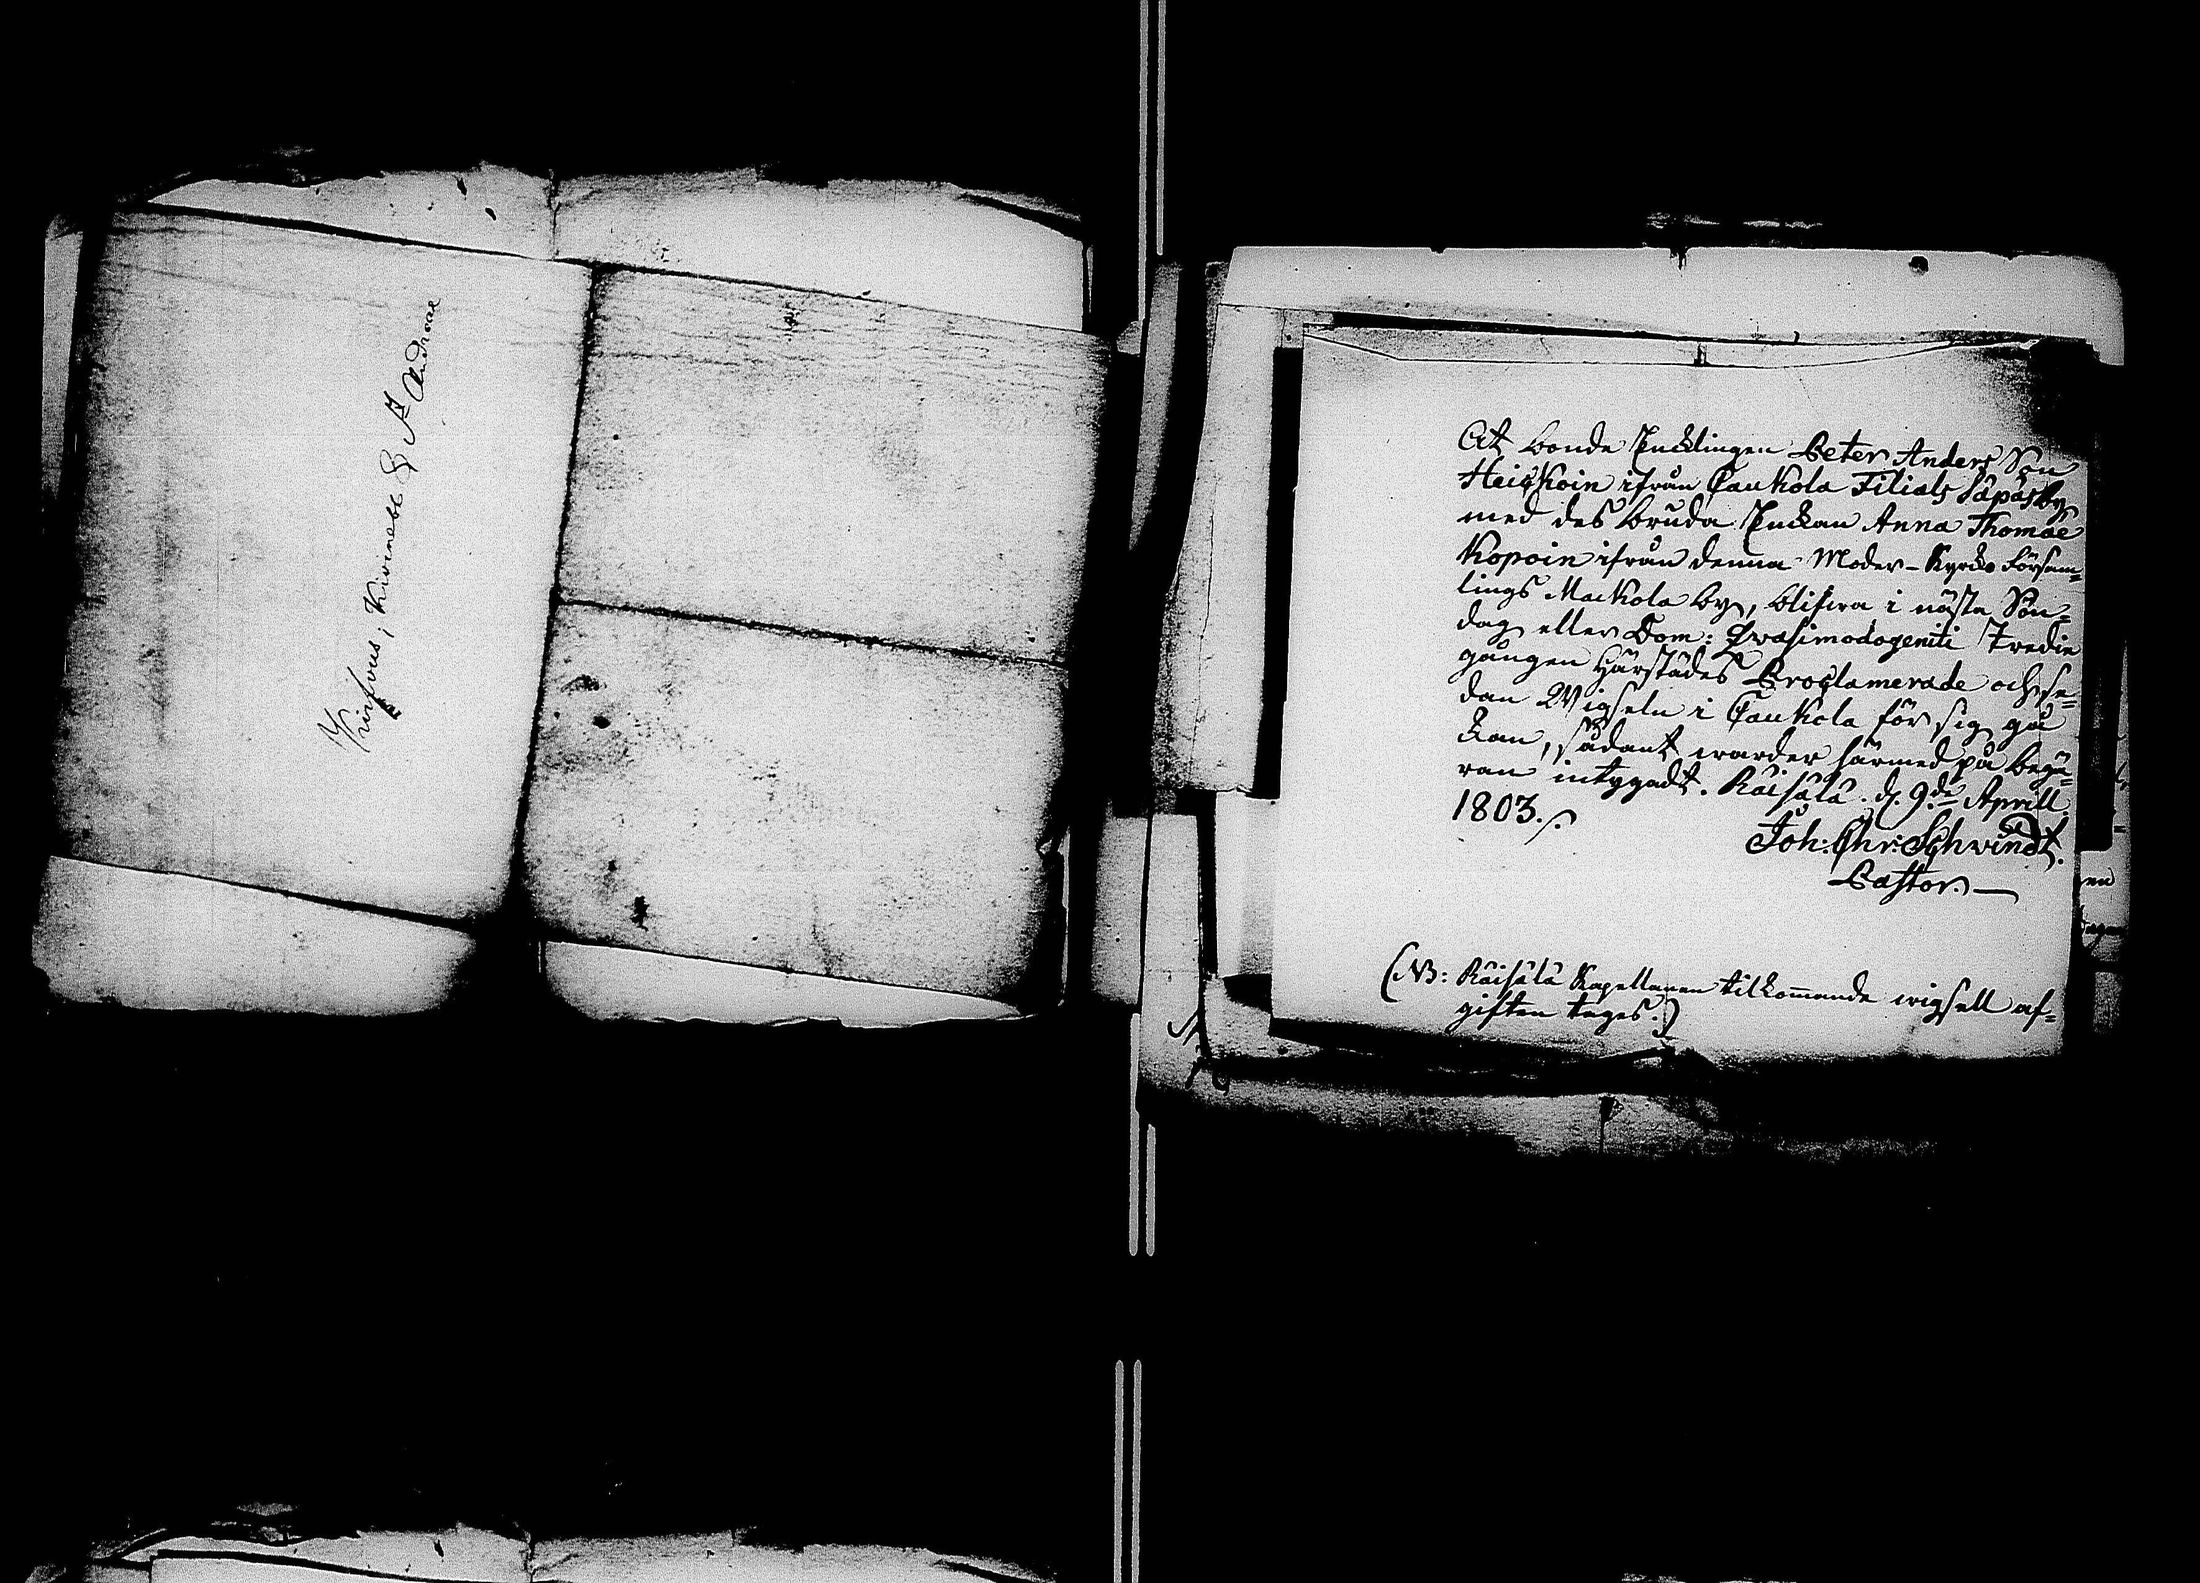 Kirfvus; Kivinebb & St Andreae
At bonde Yncklingen Peter Anders Son
Heisskoin ifrån Caukola Filials Säpäis by
med des bruda Ynckan Anna Thomae
Kopoin ifrån denna Moder-Kyrcko Försam=
lings Mackola by, blifwa i nästa Sön=
dag eller Dom: Qvasimodogeniti Tredie
gången härstädes Proclamerade och se=
dan Wigseln i Caukola för sig gå
kan, sådant warder härmed på begä=
ran intygadt. Räisälä. d. 9.de Aprill
1803.
Joh: Chr: Schvindt.
Pastor.
(NB: Räisälä Kapellanen tilkommande wigsell af=
giften tages.)